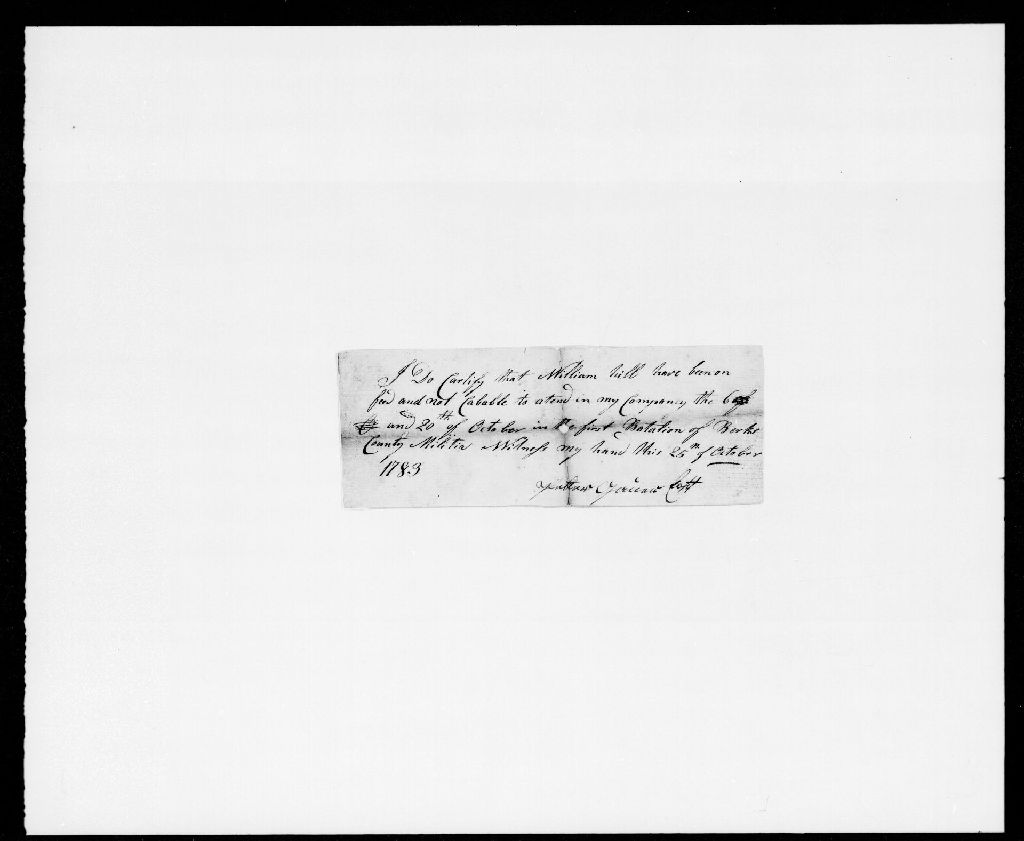 I Do Cartify that William hill have been on
fid and not Cabable to atend in my Company the 6
and 20th of October in the first Batalion of Berks
County Militia Witness my hand this 25th of October
1783
Capt